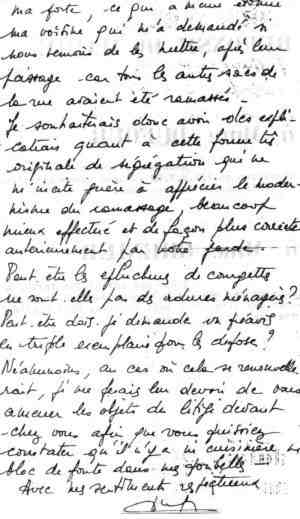 ma porte, ce qui a même étonné
ma voisine qui m'a demandé si
nous venions de les mettre, après leur
passage car tous les autres sacs de
la rue avaient été ramassés.
Je souhaiterais donc avoir des expli-
cations quant à cette forme très
originale de ségrégation qui ne
m'incite guère à apprécier le moder-
nisme du ramassage, beaucoup
mieux effectué et de façon plus correcte
antérieurement par notre garde.
Peut être les épluchures de courgettes
ne sont-elles pas des ordures ménagères ?
Peut-être dois-je demander un préavis
en triple exemplaire pour les déposer ?
Néanmoins, au cas où cela se renouvelle
rait, je me ferais un devoir de vous
amener les objets du litige devant
chez vous afin que vous puissiez
constater qu'il n'y a ni cuisinière ni
bloc de fonte dans mes poubelles.
Avec mes sentiments respectueux